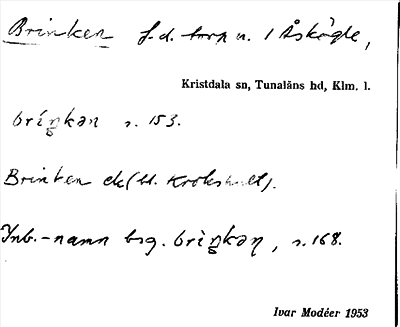 Brinken f.d. torp u. 1 Åskögle,
Kristdala sn, Tunaläns hd, Klm. l.
bríŋkən s. 153.
Brinken ek (bl. Krokshult).
Inb.-namn bsg. brìŋkən̥, s. 168.
Ivar Modéer 1953